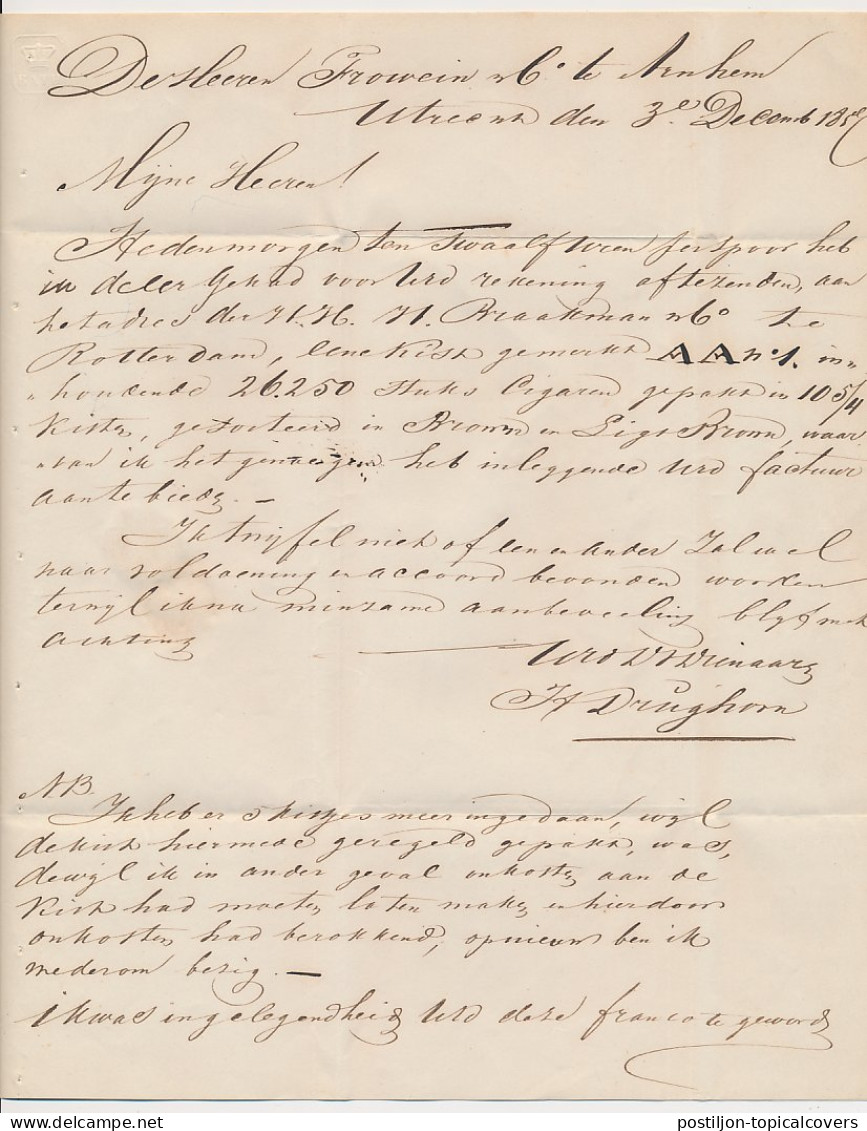 De Heeren Frowein & Co. te Arnhem
Utrecht den 3e Decemb 185
Mijne Heeren!
Hedenmorgen ten twaalf uren per spoor heb
ik de eer gehad voor UEd rekening aftezenden, aan
het adres der H.H. H. Braakman & Co te
Rotterdam, eene kist gemerkt AA No 1. in„
„houdende 26.250 stuks Cigaren gepakt in 105/4
kisten, gesorteerd in Brown en Ligt Brown, waar
„van ik het genoegen heb inleggende UEd factuur
aantebieden. —
Ik twijfel niet of een en ander zal wel
naar voldoening en accoord bevonden worden
terwijl ik na minzame aanbeveeling blyf met
achting
UEd DW Dienaar
H Drughorn
NB.
Ik heb er 5 kistjes meer ingedaan, wijl
de kist hiermede geregeld gepakt was,
dewijl ik in ander geval onkosten aan de
kist had moeten laten maken en hierdoor
onkosten had berokkend, opnieuw ben ik
wederom bezig. —
ik was in gelegendheid UEd deze franco te geworden
postiljon-topicalcovers